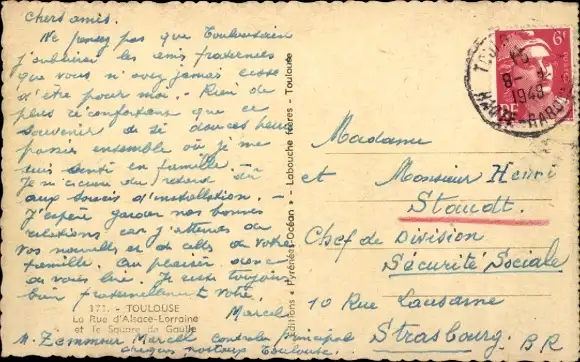 Chers amis.
Ne pensez pas que Toulousain
j'oublierai les amis
que vous n'avez jamais cessé
d'être pour moi. - Rien de
plus réconfortant que ce
souvenir de si douces heures
passées ensemble où je me
suis senti en famille.
Je m'excuse du retard dû
aux soucis d'installation. -
J'espère garder nos bonnes
relations car j'attends de
vos nouvelles et de celles de votre
famille. Au plaisir donc
de vous lire. Je suis toujours
bien fraternellement vôtre.
Marcel
171. - TOULOUSE
La Rue d'Alsace-Lorraine
et le Square de Gaulle
M. Zemmour Marcel Controleur Principal
chèques postaux Toulouse.
Editions « Pyrénées-Océan » - Labouche frères - Toulouse
6F
8-2
1948
HAUTE-GARONNE
Madame
et Monsieur Henri
Staudt.
Chef de Division
Sécurité Sociale
10 Rue Lausanne
Strasbourg. BR